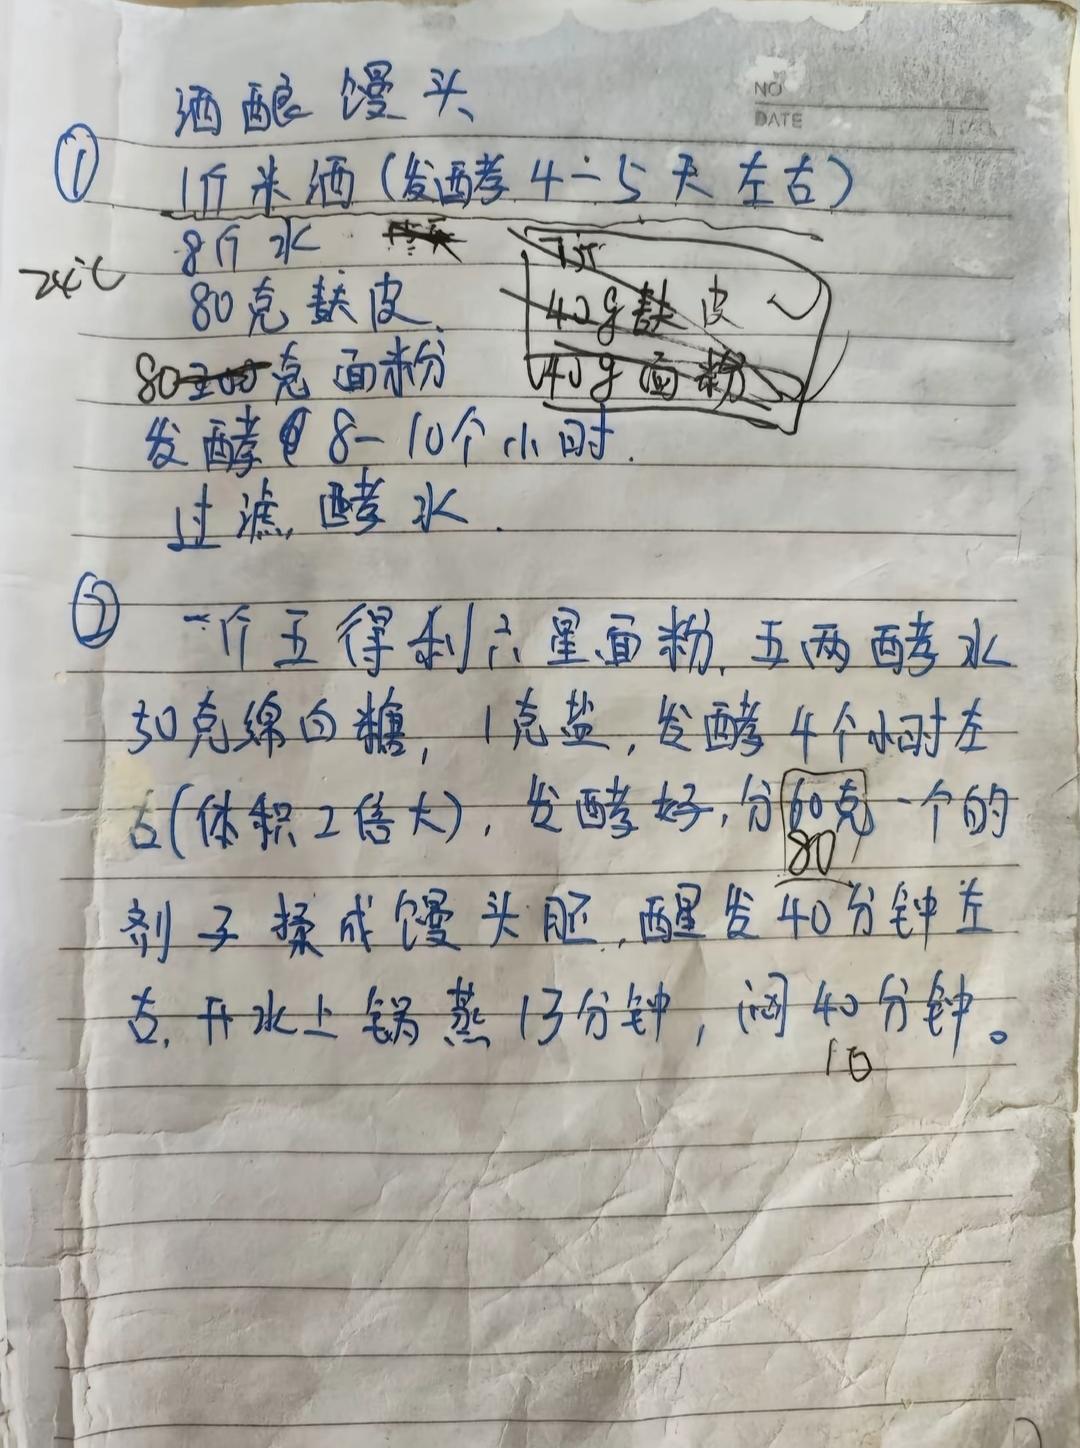 NO
DATE
酒酿馒头
① 1斤米酒(发酵4-5天左右)
8斤水
80克麸皮
40g麸皮
80克面粉
40g面粉
发酵8-10个小时.
过滤,酵水.
② 一个五得利六星面粉,五两酵水
30克绵白糖,1克盐,发酵4个小时左
右(体积2倍大),发酵好,分60克一个的
80
剂子揉成馒头胚,醒发40分钟左
右,开水上锅蒸13分钟,闷40分钟。
10